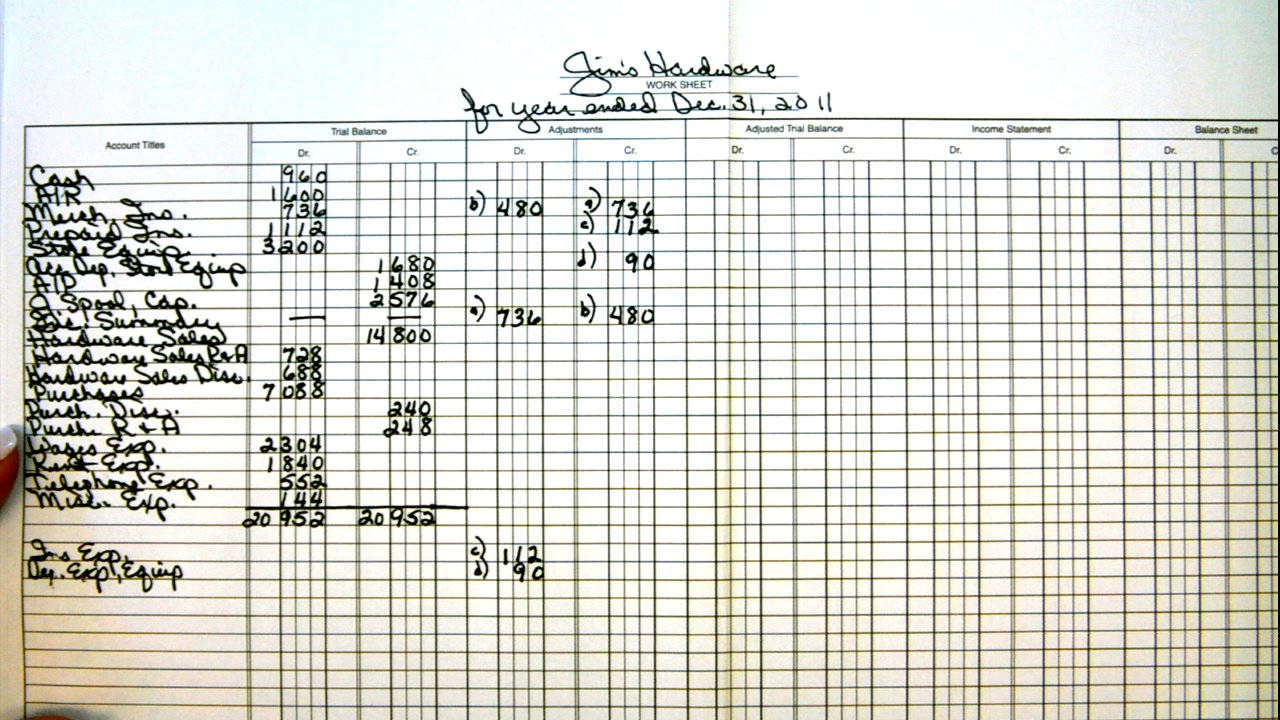 Jim's Hardware
WORK SHEET
for year ended Dec. 31, 2011
Account Titles Trial Balance Adjustments Adjusted Trial Balance Income Statement Balance Sheet
Dr. Cr. Dr. Cr. Dr. Cr. Dr. Cr. Dr. C
Cash 960
A/R 1600
Merch. Inv. 736 b) 480 a) 736
Prepaid Ins. 1112 c) 112
Store Equip. 3200
Acc. Dep. Store Equip 1680 d) 90
A/P 1408
J. Spool, Cap. 2576
Inc. Summary — — a) 736 b) 480
Hardware Sales 14800
Hardware Sales R&A 728
Hardware Sales Disc. 688
Purchases 7088
Purch. Disc. 240
Purch. R & A 248
Wages Exp. 2304
Rent Exp. 1840
Telephone Exp. 552
Misc. Exp. 144
20952 20952
Ins. Exp. c) 112
Dep. Exp, Equip d) 90